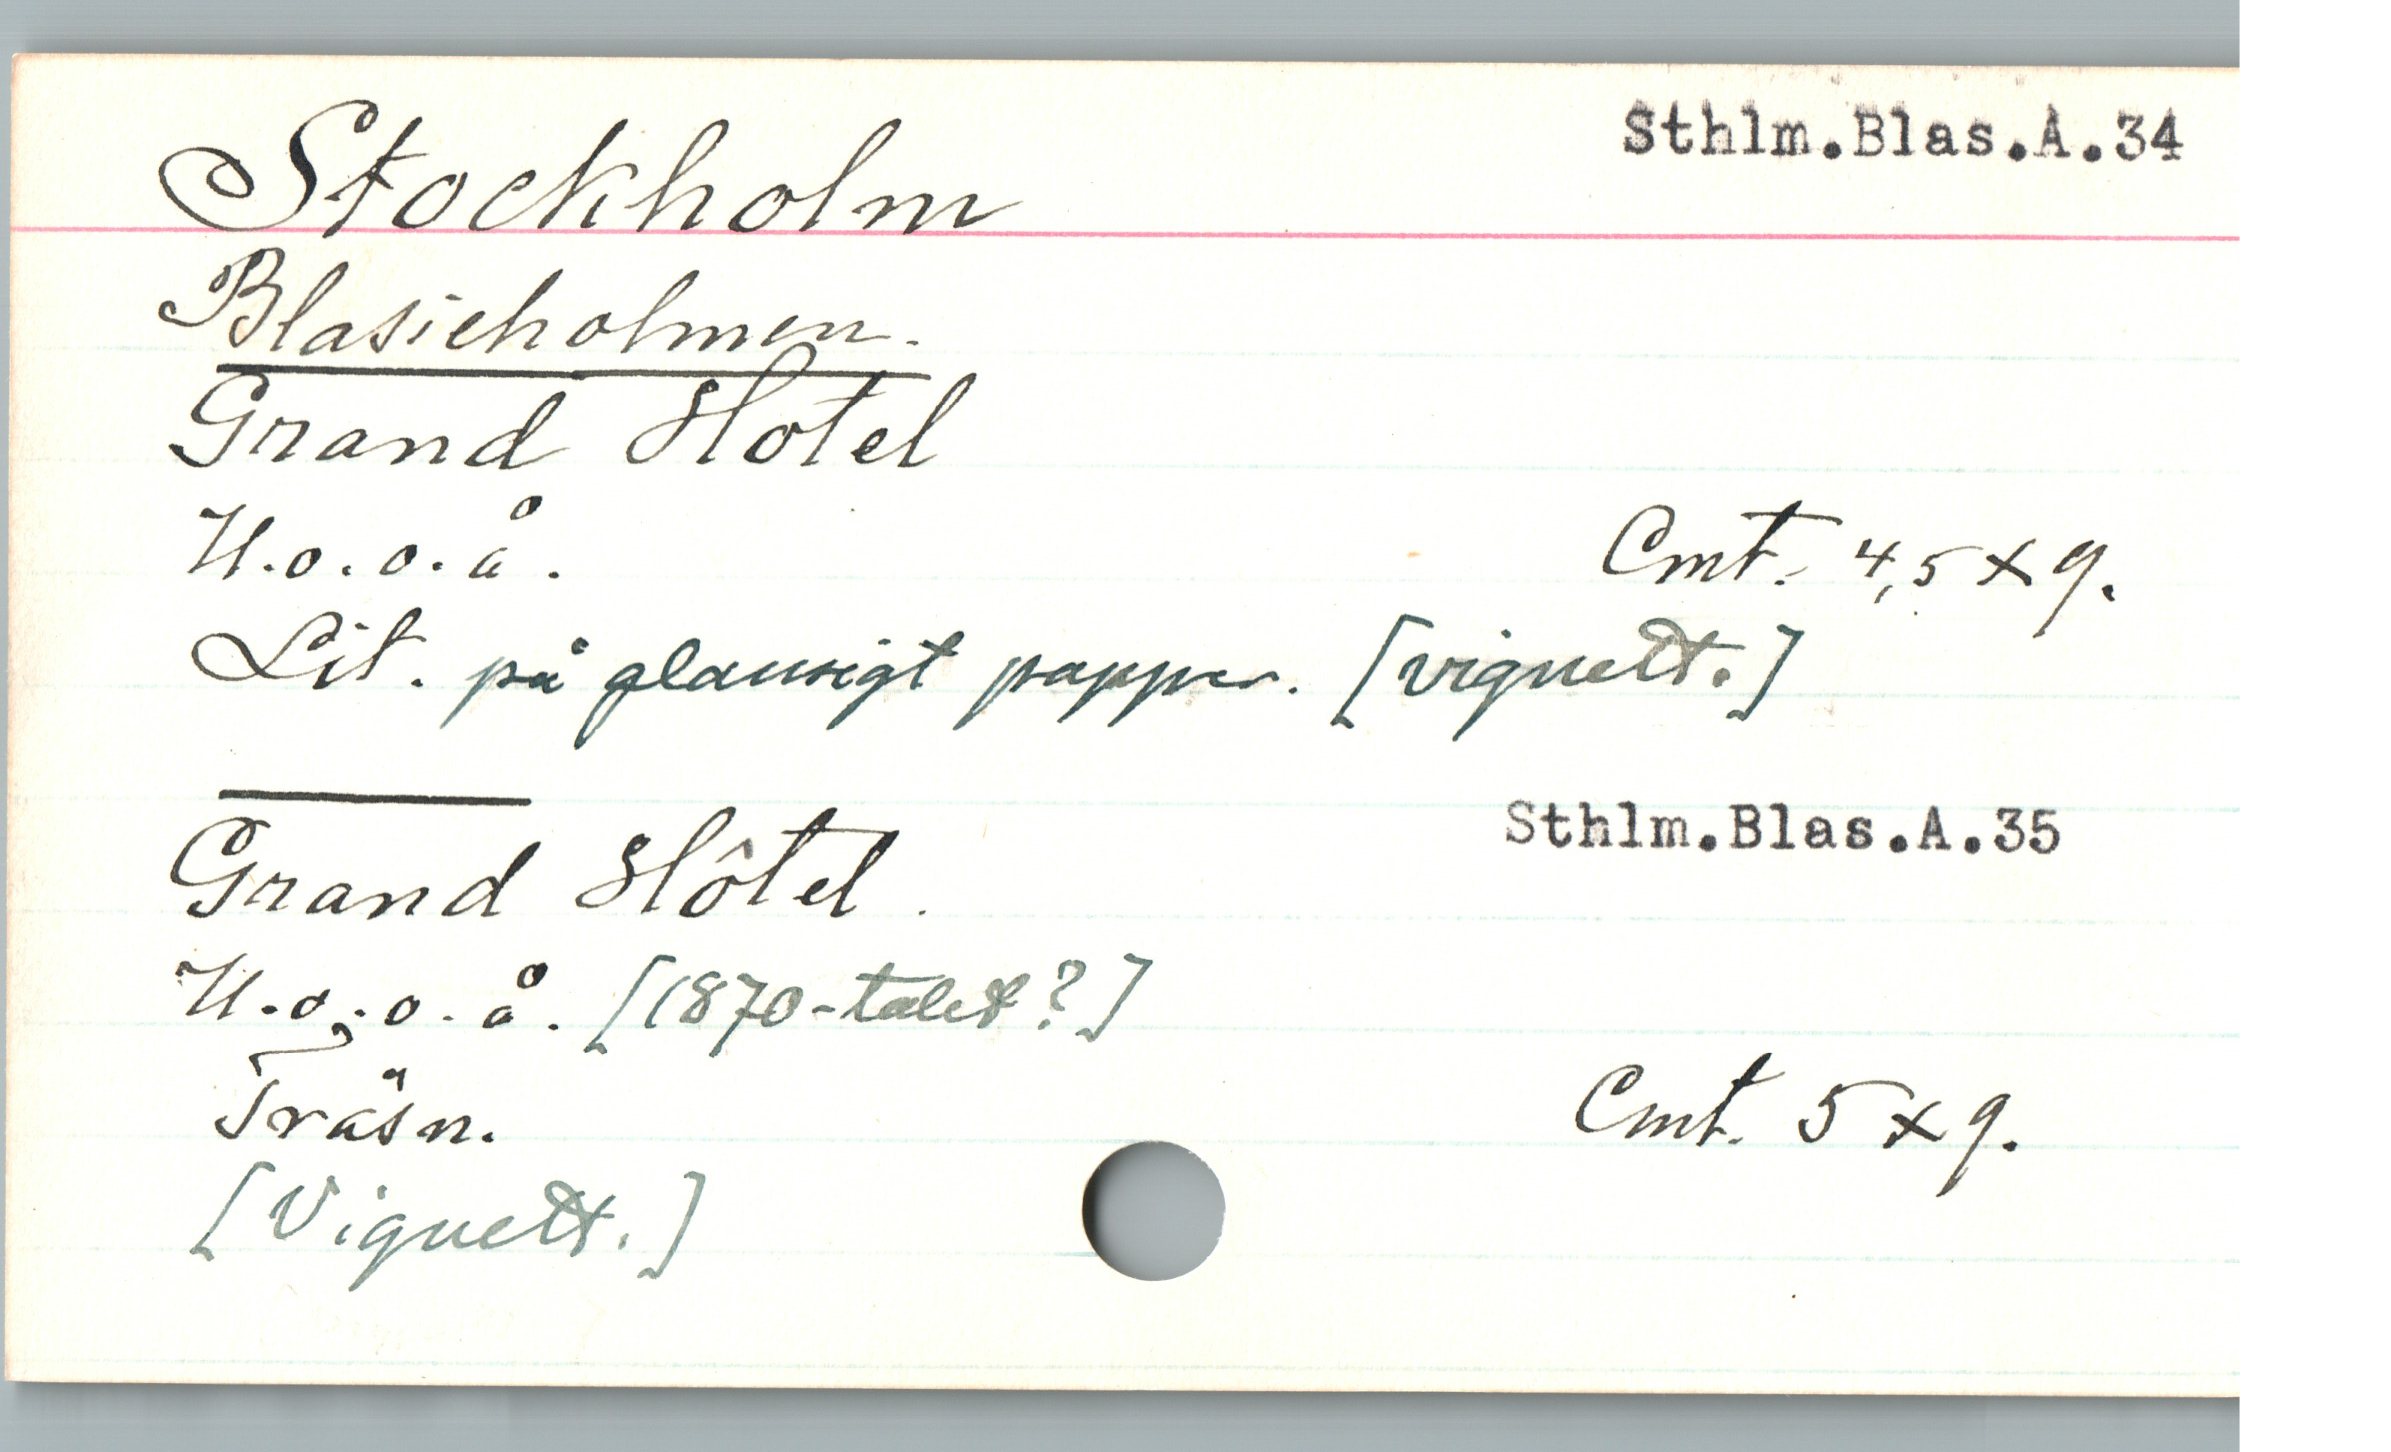 Sthlm.Blas.A.34
Stockholm
Blasieholmen.
Grand Hotel
U.o.o.å.
Cmt. 4,5 x 9.
Lit. på glansigt papper. [vignett.]
Sthlm.Blas.A.35
Grand Hôtel.
U.o.o.å. [1870-talet?]
Träsn.
Cmt. 5 x 9.
[Vignett.]